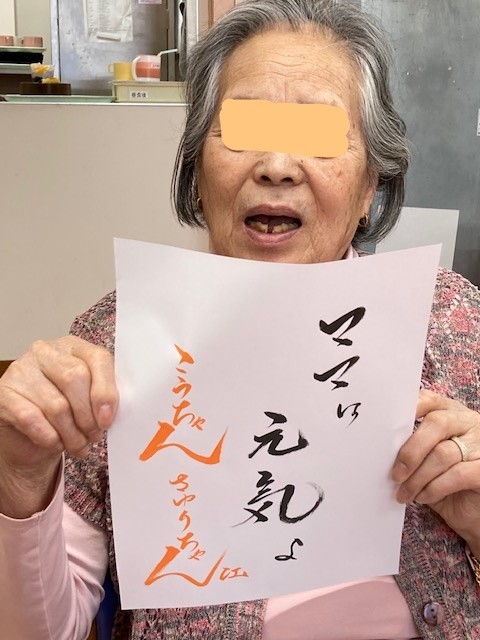 ママは
元気よ
こうちゃん
さゆりちゃん江